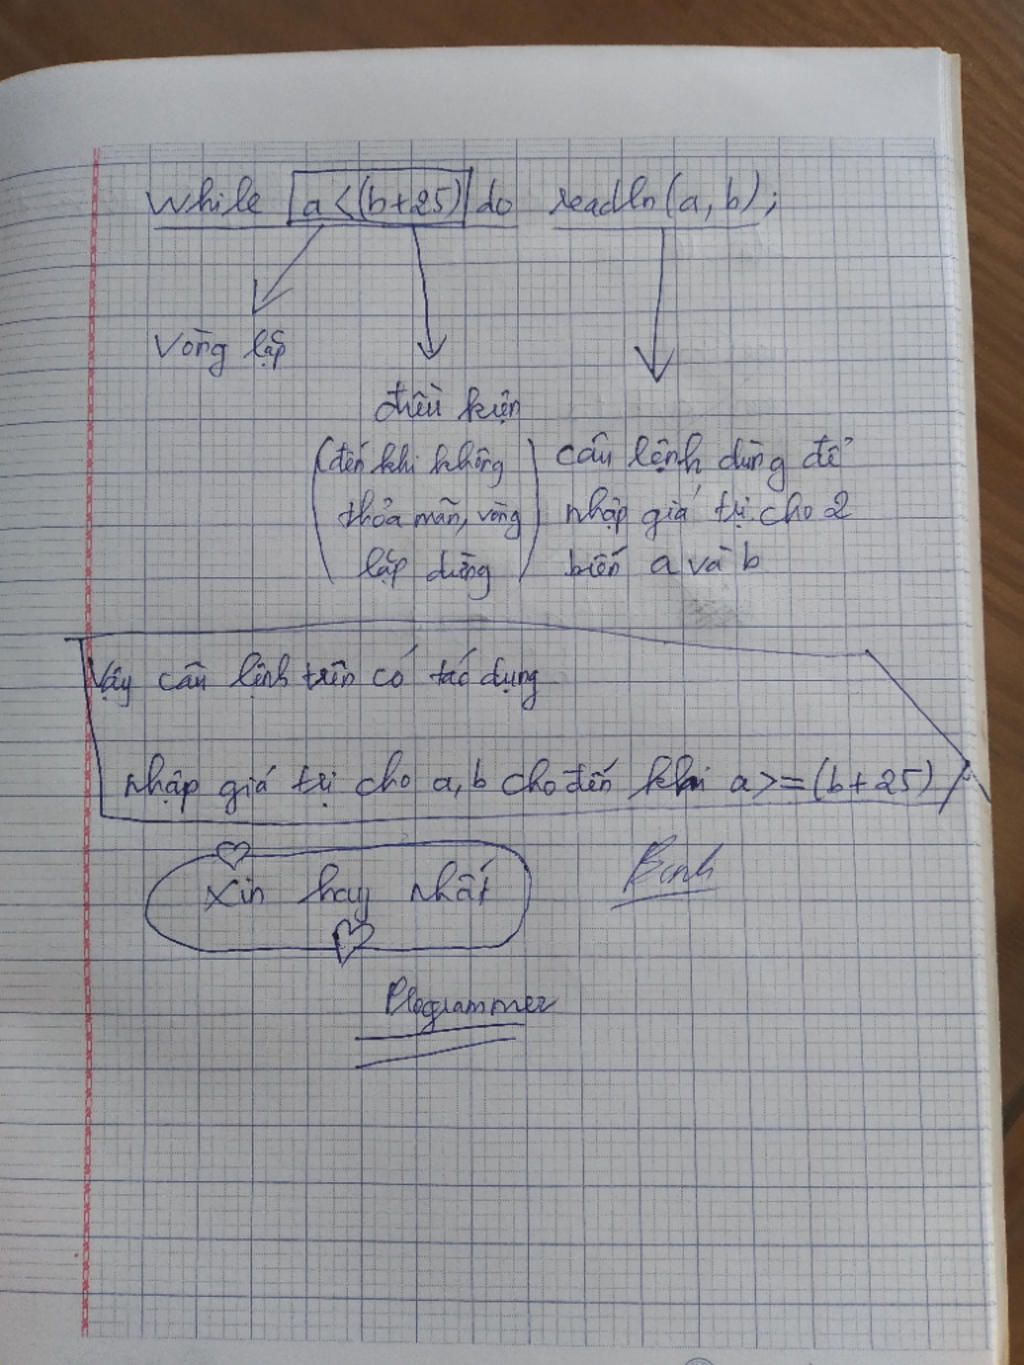 While a<(b+25) do readln(a, b);
Vòng lặp
điều kiện
(đến khi không
thỏa mãn, vòng
lặp dừng)
câu lệnh dùng để
nhập giá trị cho 2
biến a và b
Vậy câu lệnh trên có tác dụng
nhập giá trị cho a, b cho đến khi a>=(b+25)
Xin hay nhất
Programmer